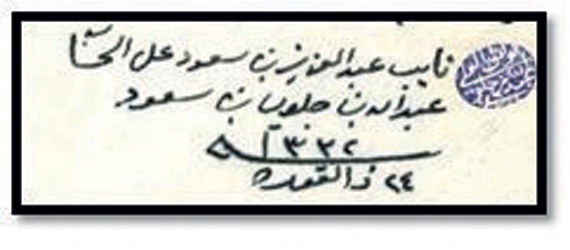 نايب عبد العزيز بن سعود على الحسا
عبدالله بن جلوي بن سعود
١٣٣٢هـ
٢٤ ذا القعده